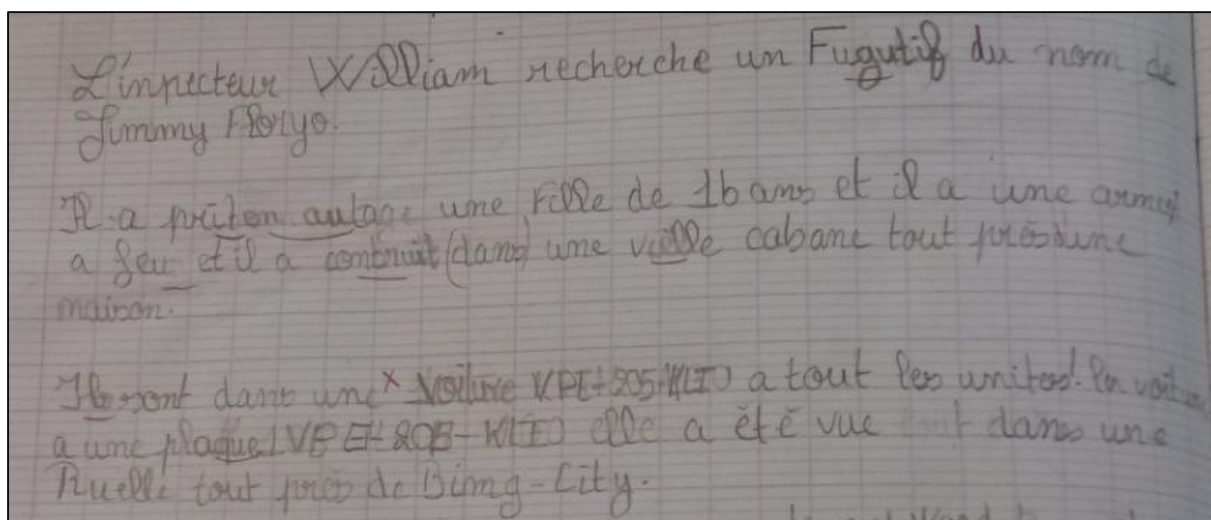 L'inpecteur William recherche un Fugutif du nom de
Jimmy
Il a priten autage une fille de 16 ans et il a une armes
a feu et il a contruit (dans) une vielle cabane tout près d'une
maison.
Ils sont dans une x Voiture a tout les unites! la voiture
a une plaque elle a été vue dans une
Ruelle tout près de City.